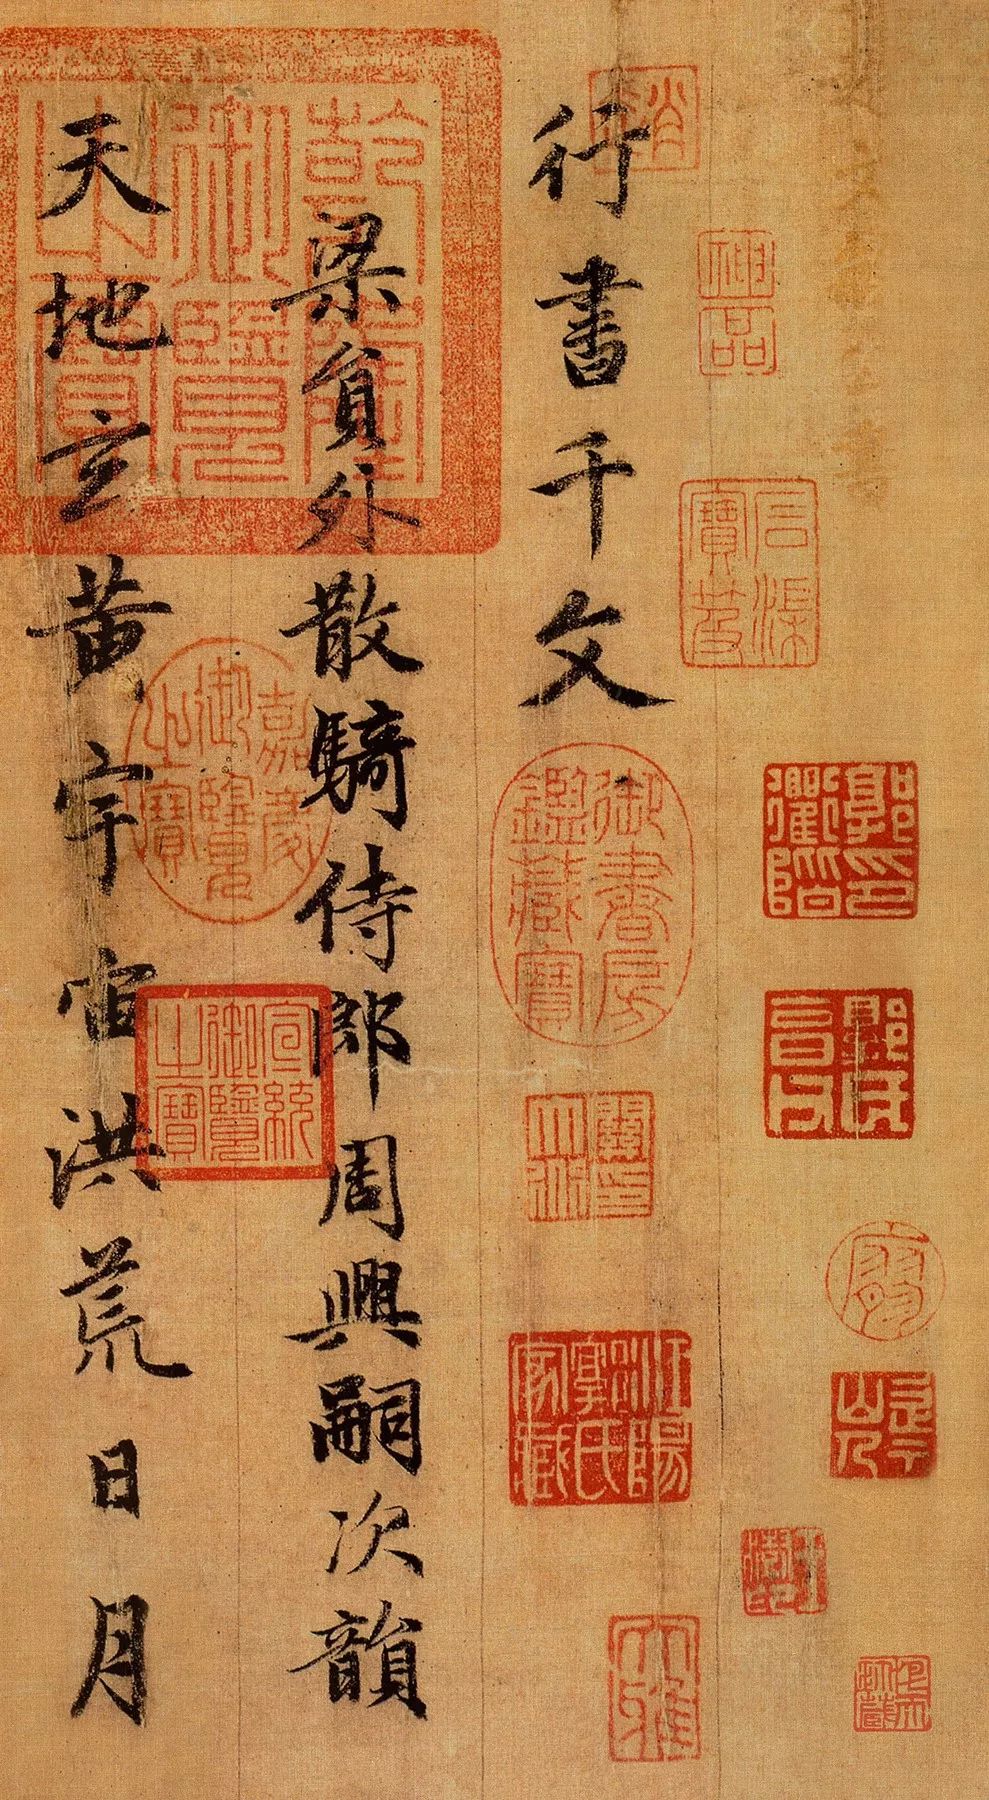 神品
石渠寶笈
行書千文
御書房鑑藏寶
梁員外散騎侍郎周興嗣次韻
乾隆御覽之寶
嘉慶御覽之寶
宣統御覽之寶
天地玄黄宇宙洪荒日月